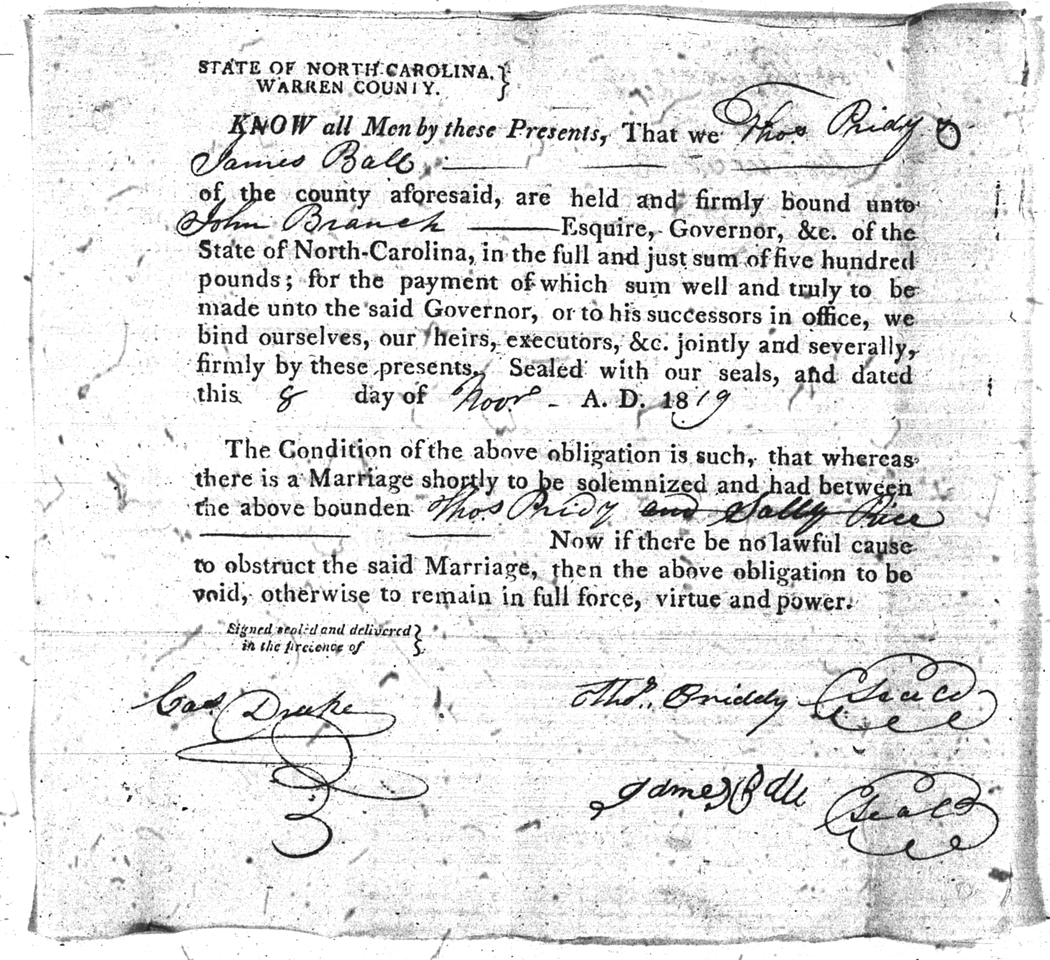 STATE OF NORTH-CAROLINA,
WARREN COUNTY. }
KNOW all Men by these Presents, That we Thos. Pridy &
James Ball
of the county aforesaid, are held and firmly bound unto
John Branch Esquire, Governor, &c. of the
State of North-Carolina, in the full and just sum of five hundred
pounds; for the payment of which sum well and truly to be
made unto the said Governor, or to his successors in office, we
bind ourselves, our heirs, executors, &c. jointly and severally,
firmly by these presents. Sealed with our seals, and dated
this 8 day of Novr. A. D. 1819
The Condition of the above obligation is such, that whereas
there is a Marriage shortly to be solemnized and had between
the above bounden Thos. Pridy and Sally Rice
Now if there be no lawful cause
to obstruct the said Marriage, then the above obligation to be
void, otherwise to remain in full force, virtue and power.
Signed sealed and delivered
in the presence of }
Cas. Drake
Thos. Priddy Seal
James Ball Seal